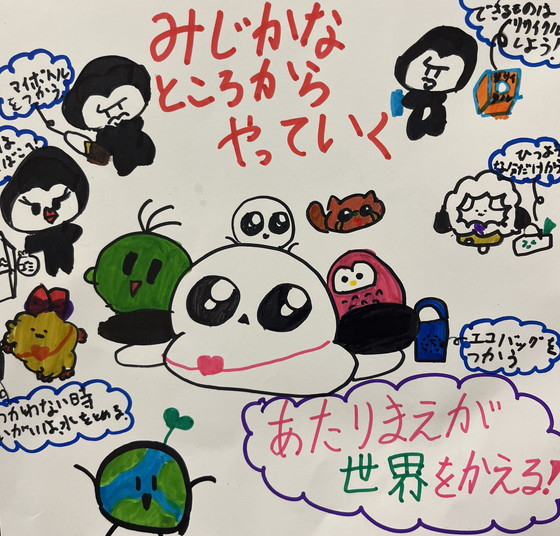 みじかな
ところから
やっていく
マイボトル
をつかう
できるものは
リサイクル
しよう!
リサイ
クル
ゴミ
ひつよう
なぶんだけかう
エコバッグを
つかう
つかわない時
は、水をとめる。
あたりまえが
世界をかえる!